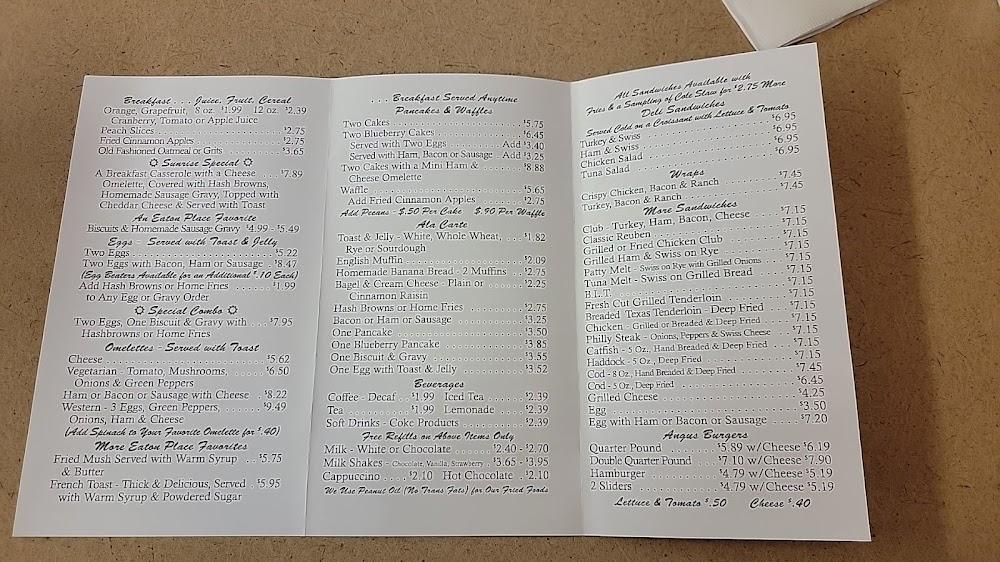 Breakfast . . . Juice, Fruit, Cereal
Orange, Grapefruit, 8 oz. $1.99 12 oz. $2.39
Cranberry, Tomato or Apple Juice
Peach Slices $2.75
Fried Cinnamon Apples $2.75
Old Fashioned Oatmeal or Grits $3.65
Sunrise Special
A Breakfast Casserole with a Cheese $7.89
Omelette, Covered with Hash Browns,
Homemade Sausage Gravy, Topped with
Cheddar Cheese & Served with Toast
An Eaton Place Favorite
Biscuits & Homemade Sausage Gravy $4.99 - $5.49
Eggs - Served with Toast & Jelly
Two Eggs $5.22
Two Eggs with Bacon, Ham or Sausage $8.47
(Egg Beaters Available for an Additional $.10 Each)
Add Hash Browns or Home Fries $1.99
to Any Egg or Gravy Order
Special Combo
Two Eggs, One Biscuit & Gravy with $7.95
Hashbrowns or Home Fries
Omelettes - Served with Toast
Cheese $5.62
Vegetarian - Tomato, Mushrooms, $6.50
Onions & Green Peppers
Ham or Bacon or Sausage with Cheese $8.22
Western - 3 Eggs, Green Peppers, $9.49
Onions, Ham & Cheese
(Add Spinach to Your Favorite Omelette for $.40)
More Eaton Place Favorites
Fried Mush Served with Warm Syrup $5.75
& Butter
French Toast - Thick & Delicious, Served $5.95
with Warm Syrup & Powdered Sugar
. . . Breakfast Served Anytime
Pancakes & Waffles
Two Cakes $5.75
Two Blueberry Cakes $6.45
Served with Two Eggs Add $3.40
Served with Ham, Bacon or Sausage Add $3.25
Two Cakes with a Mini Ham & $8.88
Cheese Omelette
Waffle $5.65
Add Fried Cinnamon Apples $2.75
Add Pecans - $.50 Per Cake $.90 Per Waffle
Ala Carte
Toast & Jelly - White, Whole Wheat, $1.82
Rye or Sourdough
English Muffin $2.09
Homemade Banana Bread - 2 Muffins $2.75
Bagel & Cream Cheese - Plain or $2.25
Cinnamon Raisin
Hash Browns or Home Fries $2.75
Bacon or Ham or Sausage $3.25
One Pancake $3.50
One Blueberry Pancake $3.85
One Biscuit & Gravy $3.55
One Egg with Toast & Jelly $3.52
Beverages
Coffee - Decaf $1.99 Iced Tea $2.39
Tea $1.99 Lemonade $2.39
Soft Drinks - Coke Products $2.39
Free Refills on Above Items Only
Milk - White or Chocolate $2.40 - $2.70
Milk Shakes - Chocolate, Vanilla, Strawberry $3.65 - $3.95
Cappuccino $2.10 Hot Chocolate $2.10
We Use Peanut Oil (No Trans Fats) for Our Fried Foods
All Sandwiches Available with
Fries & a Sampling of Cole Slaw for $2.75 More
Deli Sandwiches
Served Cold on a Croissant with Lettuce & Tomato
Turkey & Swiss $6.95
Ham & Swiss $6.95
Chicken Salad $6.95
Tuna Salad $6.95
Wraps
Crispy Chicken, Bacon & Ranch $7.45
Turkey, Bacon & Ranch $7.45
More Sandwiches
Club - Turkey, Ham, Bacon, Cheese $7.15
Classic Reuben $7.15
Grilled or Fried Chicken Club $7.15
Grilled Ham & Swiss on Rye $7.15
Patty Melt - Swiss on Rye with Grilled Onions $7.15
Tuna Melt - Swiss on Grilled Bread $7.15
B.L.T. $7.15
Fresh Cut Grilled Tenderloin $7.15
Breaded Texas Tenderloin - Deep Fried $7.15
Chicken - Grilled or Breaded & Deep Fried $7.15
Philly Steak - Onions, Peppers & Swiss Cheese $7.15
Catfish - 5 Oz., Hand Breaded & Deep Fried $7.15
Haddock - 5 Oz., Deep Fried $7.15
Cod - 8 Oz., Hand Breaded & Deep Fried $7.45
Cod - 5 Oz., Deep Fried $6.45
Grilled Cheese $4.25
Egg $3.50
Egg with Ham or Bacon or Sausage $7.20
Angus Burgers
Quarter Pound $5.89 w/Cheese $6.19
Double Quarter Pound $7.10 w/Cheese $7.90
Hamburger $4.79 w/Cheese $5.19
2 Sliders $4.79 w/Cheese $5.19
Lettuce & Tomato $.50 Cheese $.40